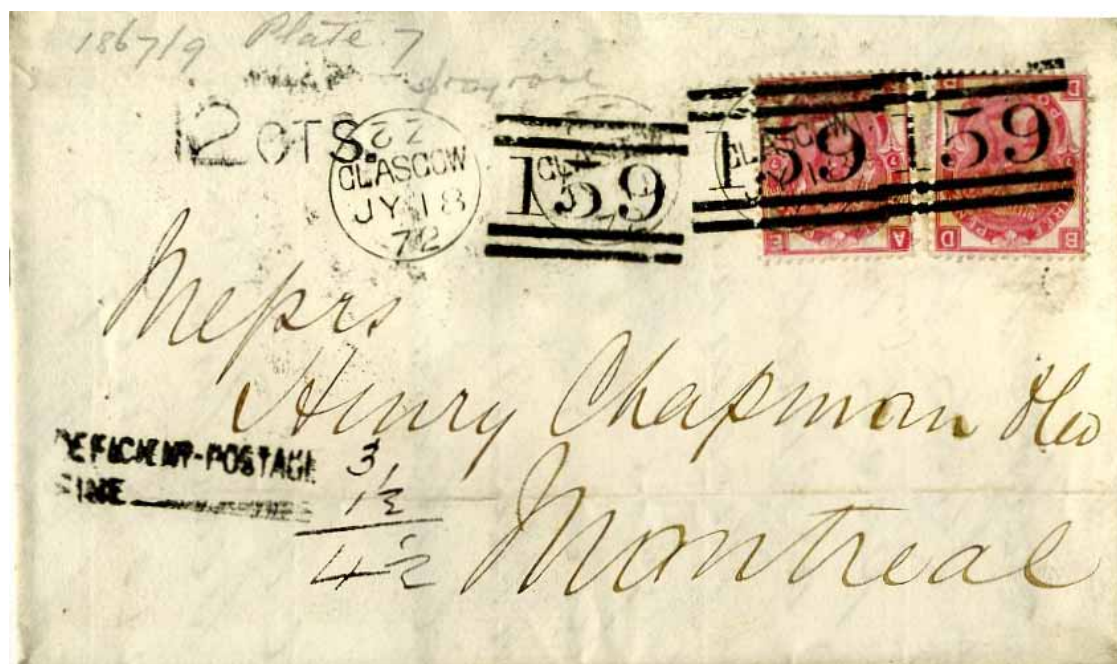 1867/9 Plate 7
12 CTS.
GLASGOW
JY 18
72
159
159
159
Messrs
Henry Chapman & Co
Montreal
DEFICIENT-POSTAGE
FINE
3
1½
4½